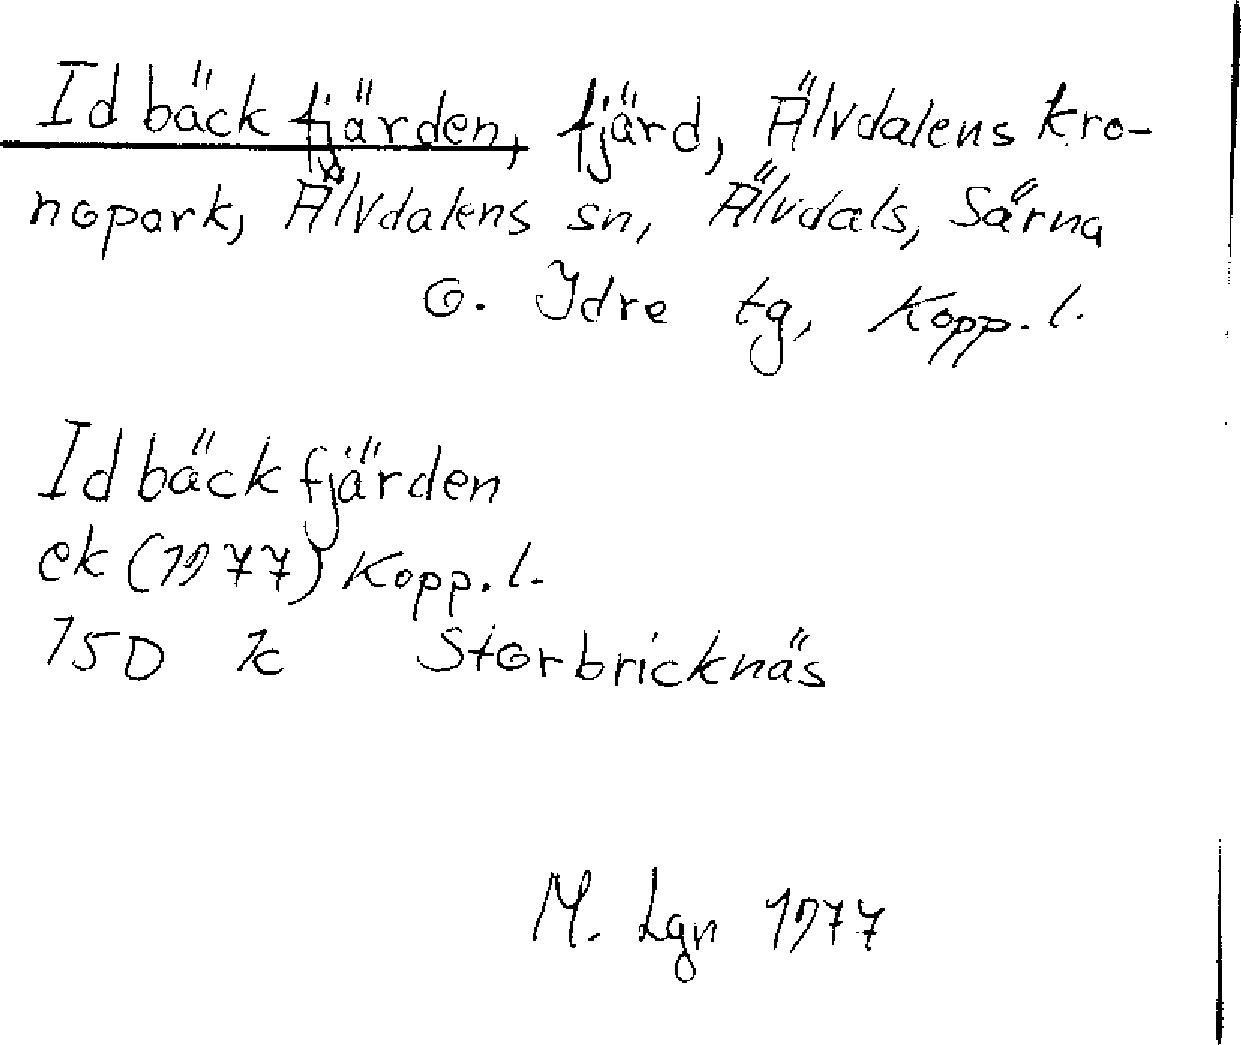 Idbäckfjärden, fjärd, Älvdalens kro-
nopark, Älvdalens sn, Älvdals, Särna
o. Idre tg, Kopp. l.
Idbäckfjärden
ek (1977) Kopp. l.
15D 1c Storbricknäs
M. Lgn 1977